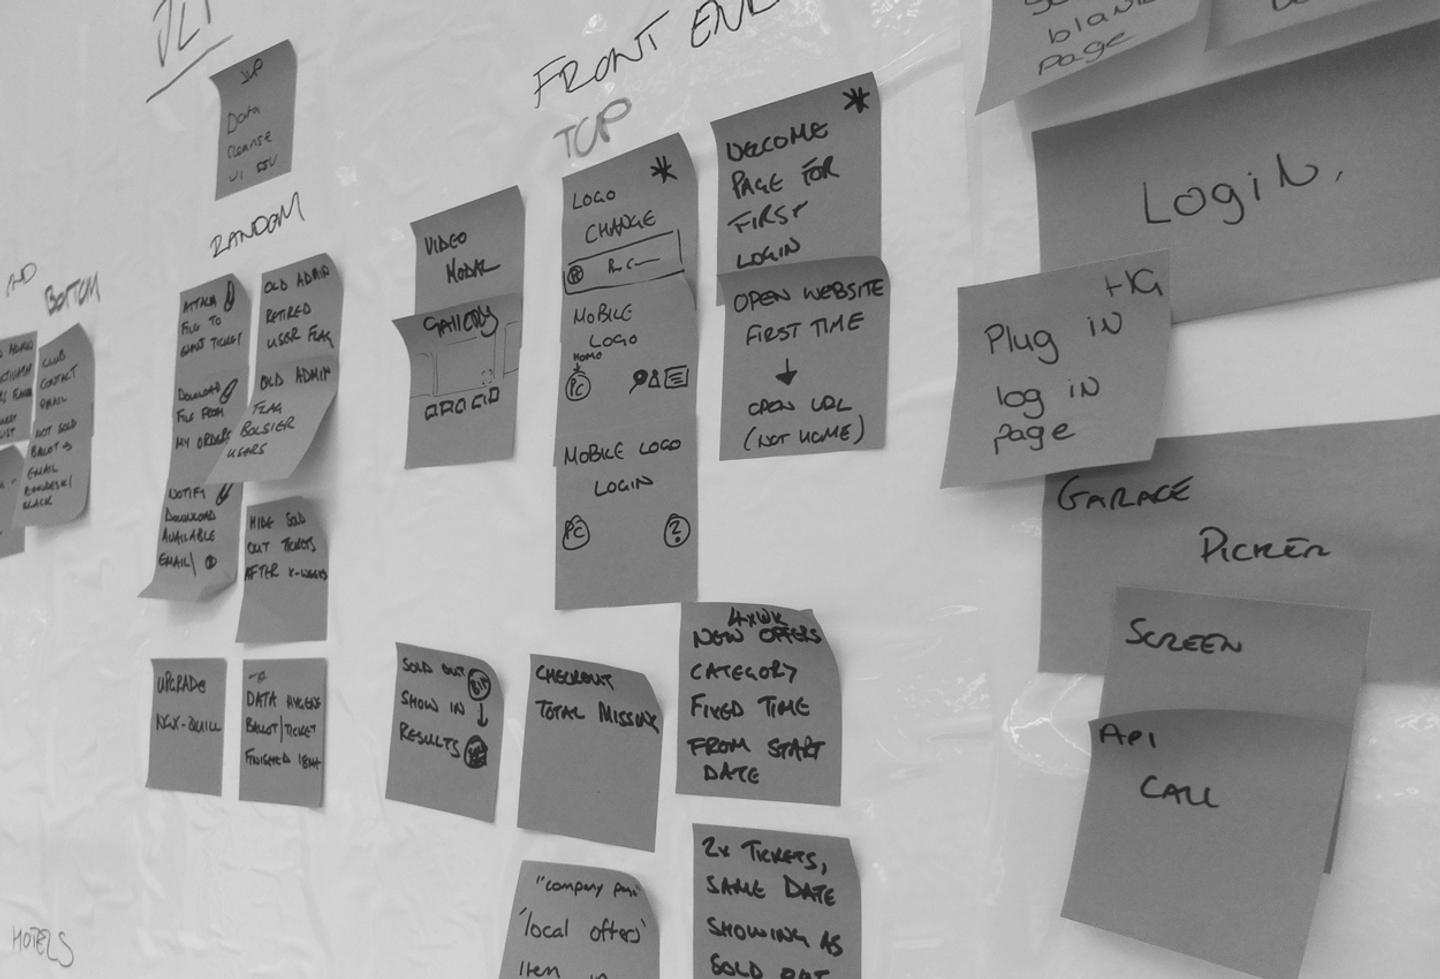 FRONT
TOP
Data
Cleanse
RANDOM
BOTTOM
HOTELS
CLUB
CONTACT
EMAIL
NOT SOLD
BALLOT
EMAIL
BLACK
ATTACH
FILE TO
EVENT TICKET
DOWNLOAD
FILE FROM
MY ORDERS
NOTIFY
DOWNLOAD
AVAILABLE
EMAIL/
OLD ADMIN
RETIRED
USER FLAG
OLD ADMIN
FLAG
BOLSIER
USERS
HIDE SOLD
OUT TICKETS
AFTER X-WEEKS
UPGRADE
NGX-QUILL
DATA HYGIENE
BALLOT/TICKET
FINISHED 18M+
VIDEO
MODAL
GALLERY
LOGO
CHANGE
MOBILE
LOGO
HOME
PC
MOBILE LOGO
LOGIN
PC ?
WELCOME
PAGE FOR
FIRST
LOGIN
OPEN WEBSITE
FIRST TIME
OPEN URL
(NOT HOME)
SOLD OUT
SHOW IN
RESULTS
CHECKOUT
TOTAL MISSING
4xWK
NEW OFFERS
CATEGORY
FIXED TIME
FROM START
DATE
"company
'local offers'
item in
2x TICKETS,
SAME DATE
SHOWING AS
SOLD OUT
blank
page
LOGIN.
+IG
Plug in
log in
page
GARAGE
PICKER
SCREEN
API
CALL